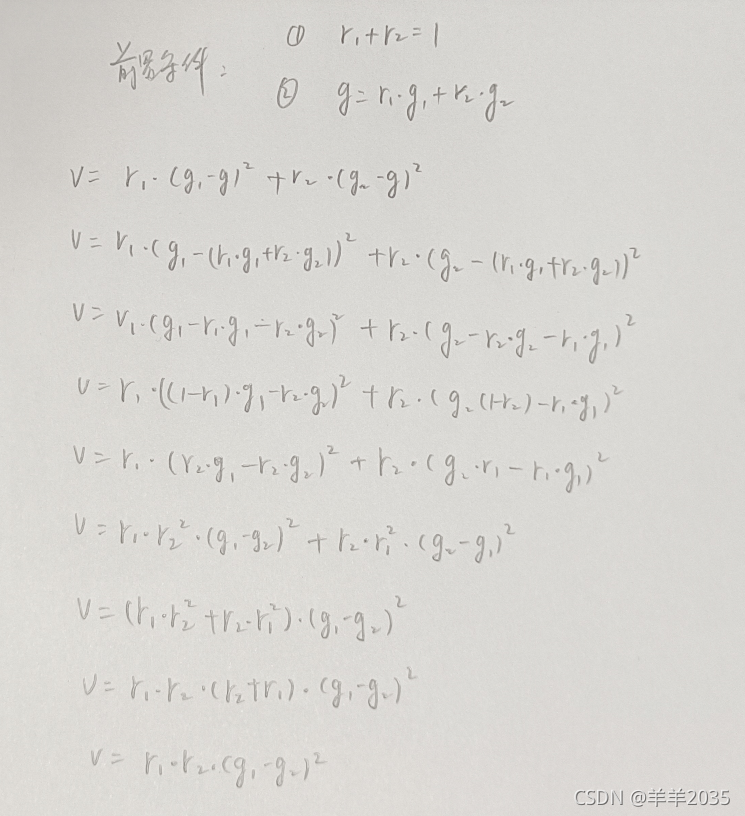 ① r₁+r₂=1
前置条件:
② g=r₁·g₁+r₂·g₂
V= r₁·(g₁-g)²+r₂·(g₂-g)²
V=r₁·(g₁-(r₁·g₁+r₂·g₂))²+r₂·(g₂-(r₁·g₁+r₂·g₂))²
V=r₁·(g₁-r₁·g₁-r₂·g₂)²+r₂·(g₂-r₂·g₂-r₁·g₁)²
V=r₁·((1-r₁)·g₁-r₂·g₂)²+r₂·(g₂(1-r₂)-r₁·g₁)²
V=r₁·(r₂·g₁-r₂·g₂)²+r₂·(g₂·r₁-r₁·g₁)²
V=r₁·r₂²·(g₁-g₂)²+r₂·r₁²·(g₂-g₁)²
V=(r₁·r₂²+r₂·r₁²)·(g₁-g₂)²
V=r₁·r₂·(r₂+r₁)·(g₁-g₂)²
V= r₁·r₂·(g₁-g₂)²
CSDN @羊羊2035